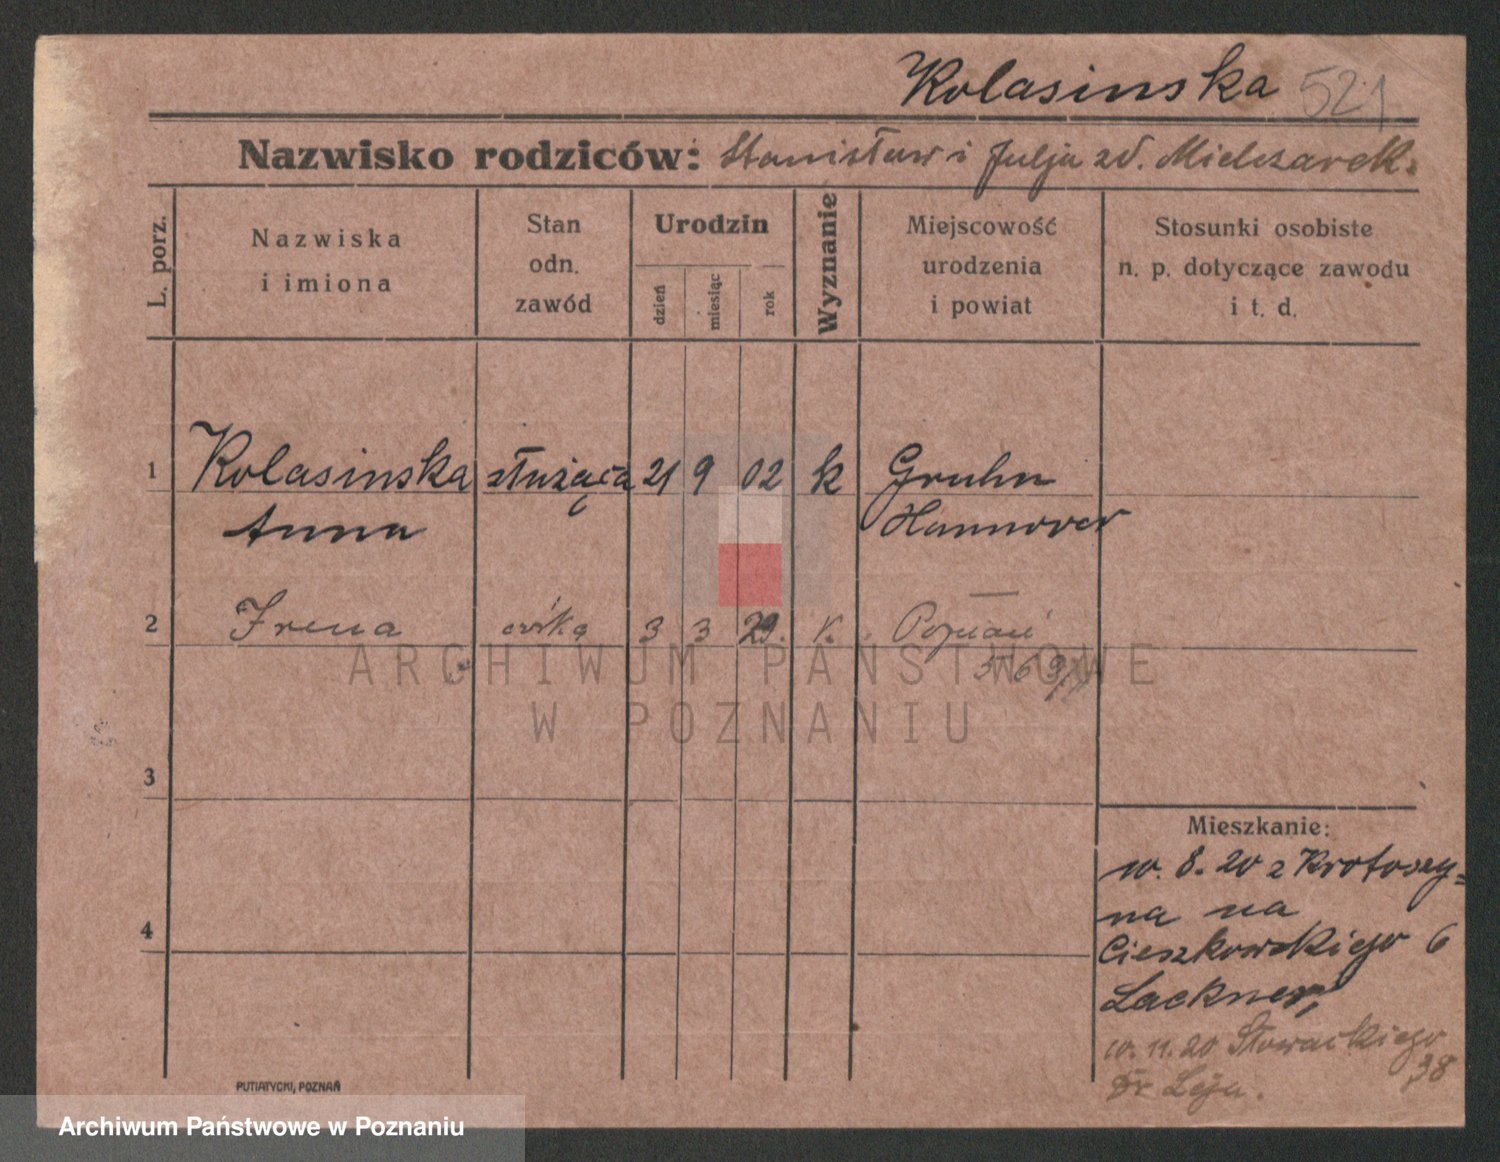 Kolasinska 521
Nazwisko rodziców: Stanisław i Julja zd. Mielczarek.
L. porz.
Nazwiska
i imiona
Stan
odn.
zawód
Urodzin
dzień
miesiąc
rok
Wyznanie
Miejscowość
urodzenia
i powiat
Stosunki osobiste
n. p. dotyczące zawodu
i t. d.
1 Kolasinska służąca 21 9 02 k Gruhn
Anna Hannover
2 Irena córka 3 3 29. k. Poznań
ARCHIWUM PAŃSTWOWE
W POZNANIU
3
4
Mieszkanie:
10. 8. 20 z Krotoszy=
na na
Cieszkowskiego 6
Lackner,
10. 11. 20 Słowackiego
38
Dr Leja.
PUTIATYCKI, POZNAŃ
Archiwum Państwowe w Poznaniu